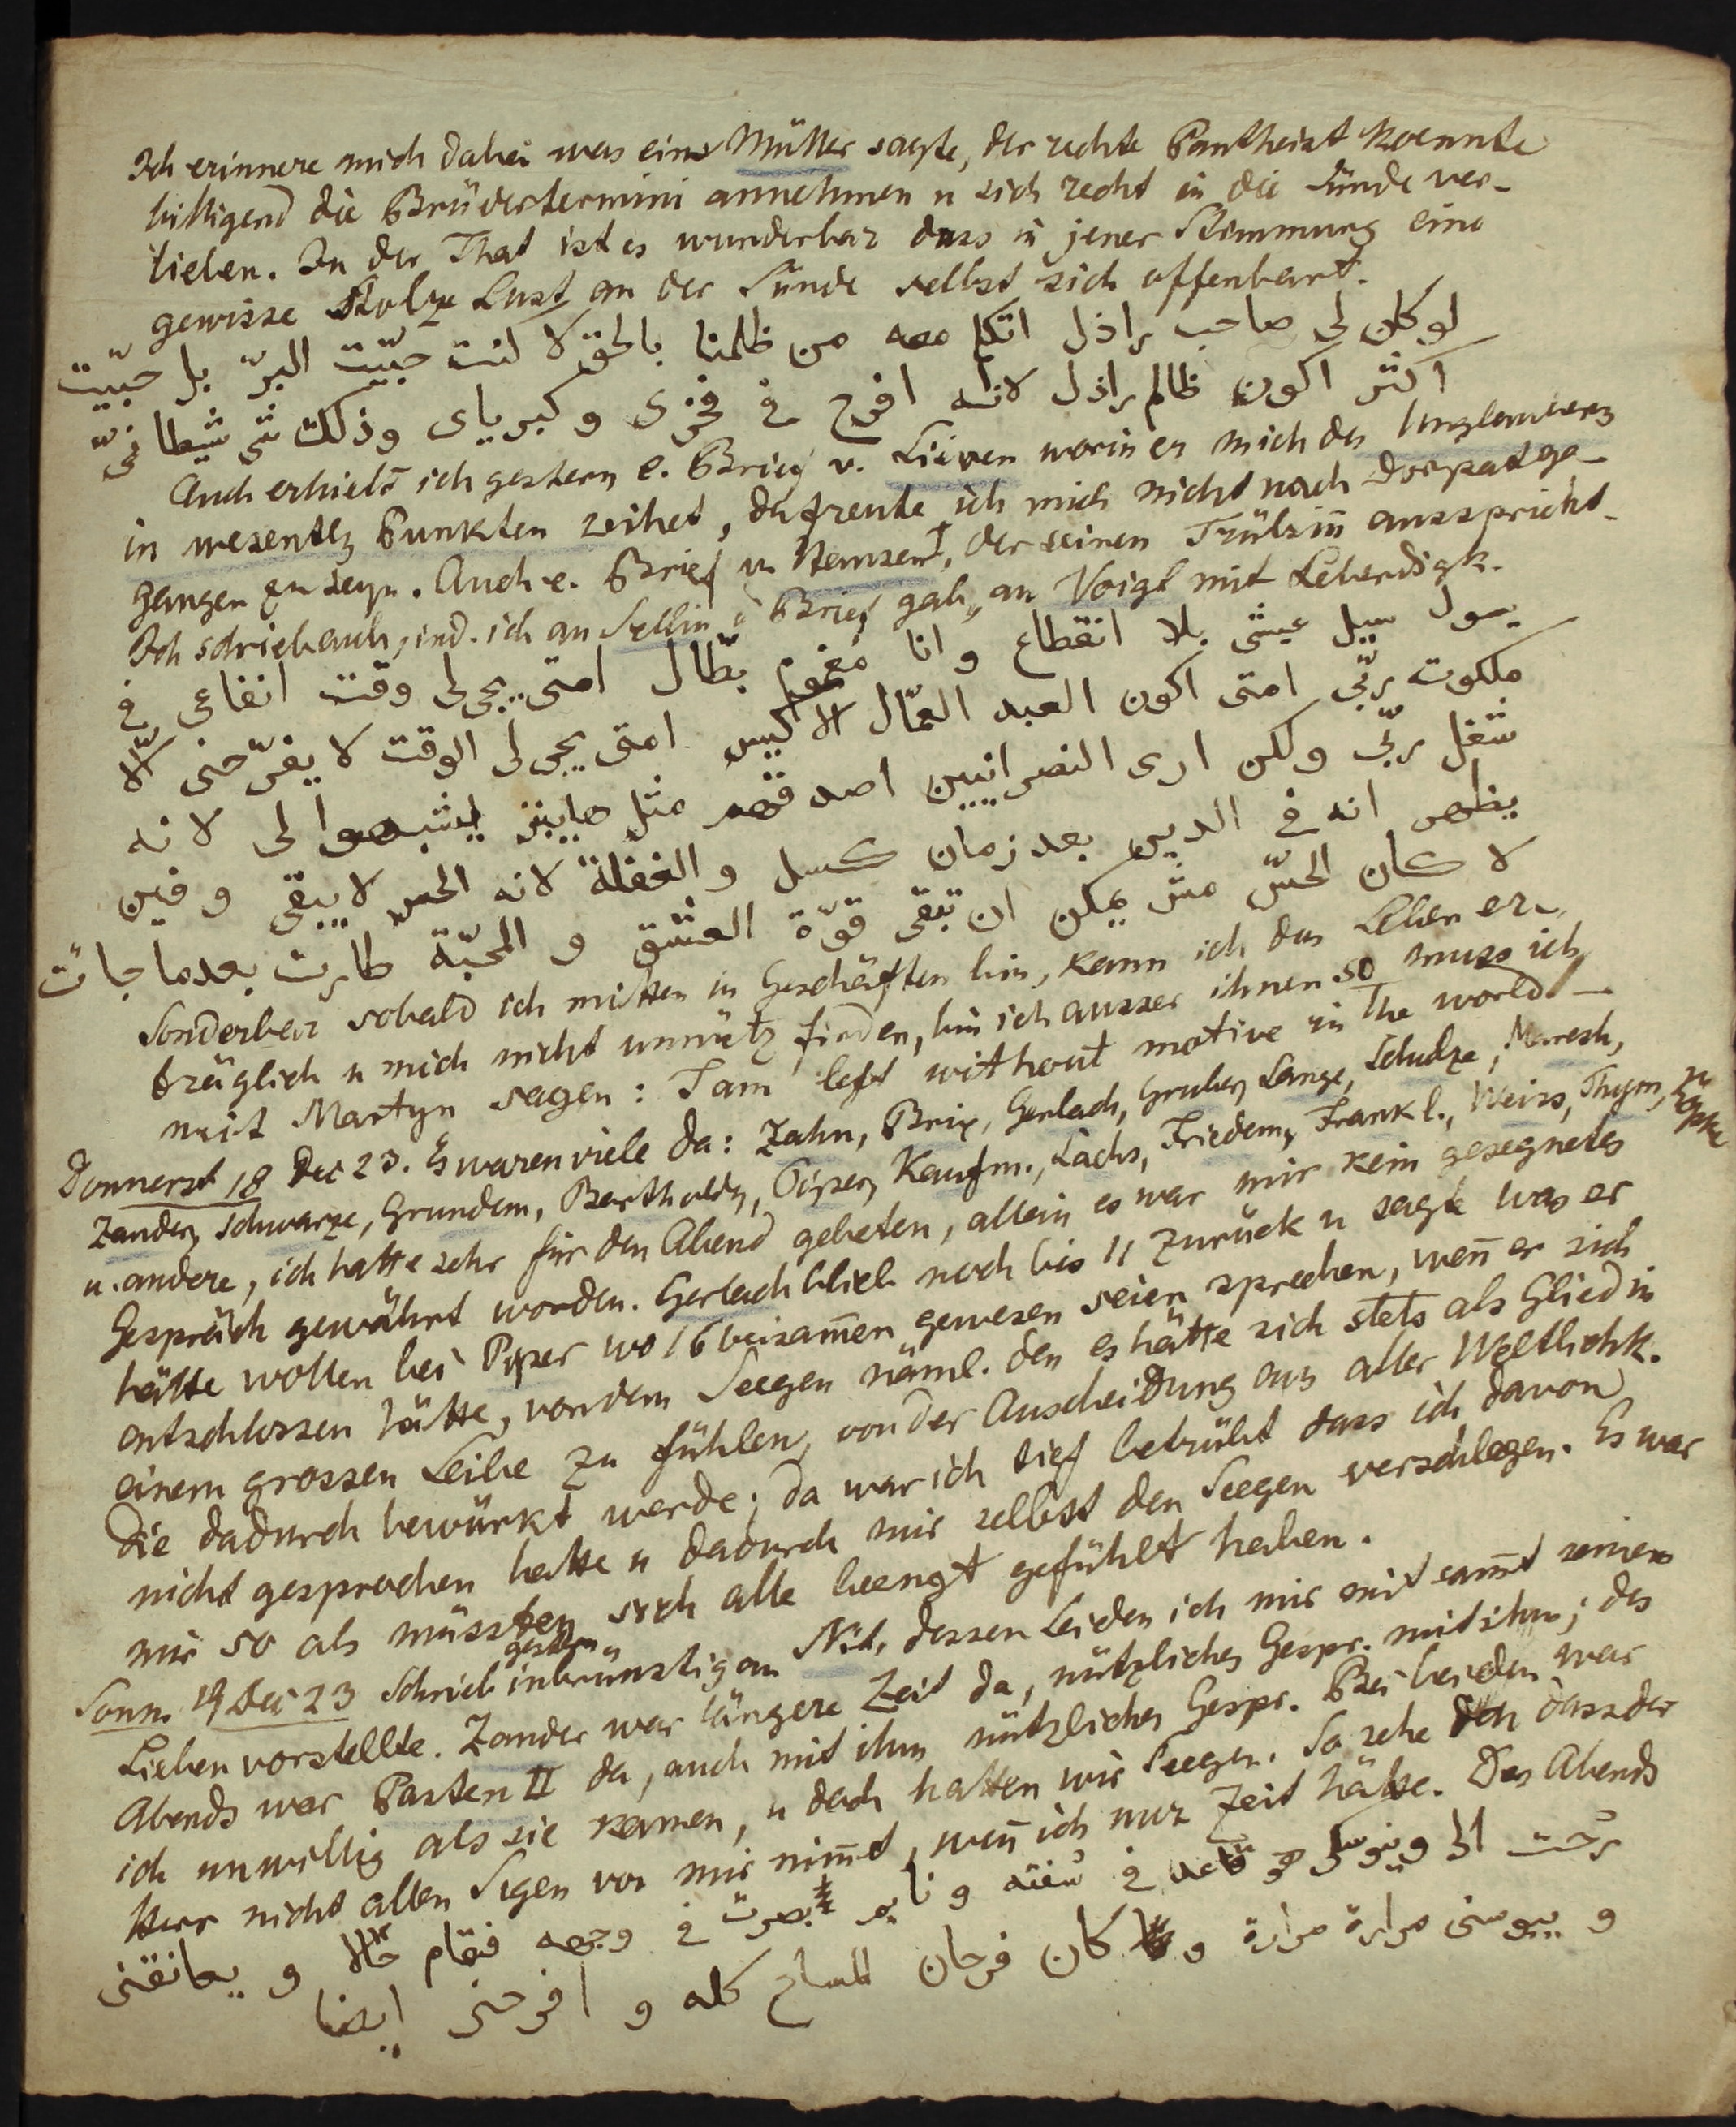 Ich erinnere mich dabei was eins Müller sagte, der rechte Pantheist koennte
billigend die Brüdertermini annehmen u sich recht in die Sünde ver-
lieben. In der That ist es wunderbar dass in jener Stimmung eine
gewisse stolze Lust an der Sünde selbst sich offenbart.
لو كان لى صاحب راذل اتكلم معه من ظلمنا بالحق لا كنت حبّيت البرّ بل حبّيت
اكثر اكون ظالم راذل لانّه افرح فى فخرى و كبرياى وذلك شى شيطانىّ
Auch erhielt ich gestern e. Brief v. Lieven worin er mich des Unglaubens
in wesentl Punkten zeihet, da freute ich mich nicht nach Dorpat ge-
gangen zu seyn. Auch e. Brief v Hemsen, der seinen Trübsinn ausspricht.
Ich schrieb auch, ind. ich an Sellin d Brief gab, an Voigt mit Lebendigk.
يسول سيل عيشى بلا انقطاع و انا مغموم بطّال امتى يجى لى وقت انفاعى فى
ملكوت ربّى امتى اكون العبد العمّال الاكيس امتى يجى لى الوقت لا يفرّحنى الّا
شغل ربّى ولكن ارى النصرانيين اصدقهم مثل هاينز يشبهوا لى لانه
يظهر انه فى الدين بعد زمان كسل والغفلة لانه الحسّ لا يبقى و فين
لا كان الحسّ مش يمكن ان تبقى قوّة العشق و المحبّة طارت بعدما جات
Sonderbar sobald ich mitten in Geschäften bin, kann ich das Leben er-
träglich u mich nicht unnütz finden, bin ich ausser ihnen so muss ich
mit Martyn sagen: I am left without motive in the world —
Donnerst 18 Dec 23. Es waren viele da: Zahn, Brix, Gerlach, Gruber, Lange, Schulze, Maresh,
Zander, Schwarze, Grundem, Berthold, Piper, Kaufm., Lachs, Friedem, Frankl., Weiss, Thym, Röpke
u. andere, ich hatte sehr für den Abend gebeten, allein es war mir kein gesegnetes
Gespräch gewährt worden. Gerlach blieb noch bis 11 zurück u sagte was er
hätte wollen bei Piper wo 16 beisamen gewesen seien sprechen, wen er sich
entschlossen hätte, von dem Seegen näml. den es hätte sich stets als Glied in
einem grossen Leibe zu fühlen, von der Auscheidung aus aller Weltlichk.
die dadurch bewürkt werde; da war ich tief betrübt dass ich davon
nicht gesprochen hatte u dadurch mir selbst den Seegen verschlagen. Es war
mir so als müssten sich alle beengt gefühlt haben.
Sonn. 19 Dec 23 schrieb gestern inbrünstig an Nd, dessen Leiden ich mir mit samt seinem
Lieben vorstellte. Zander war längere Zeit da, nützliches Gespr. mit ihm; des
Abends war Pasten II da, auch mit ihm nützliches Gespr. Bei beiden war
ich unwillig als sie kamen, u doch hatten wir Seegen. So sehe ich dass der
Herr nicht allen Segen von mir nimt, wen ich nur Zeit hätte. Des Abends
رحت الى هو قاعد فى و بصرت فى وجهه فقام حالا و يعانقنى
و يبوسنى مرارة مرارة و كان فرحان المساح كله و افرحنى ايضا